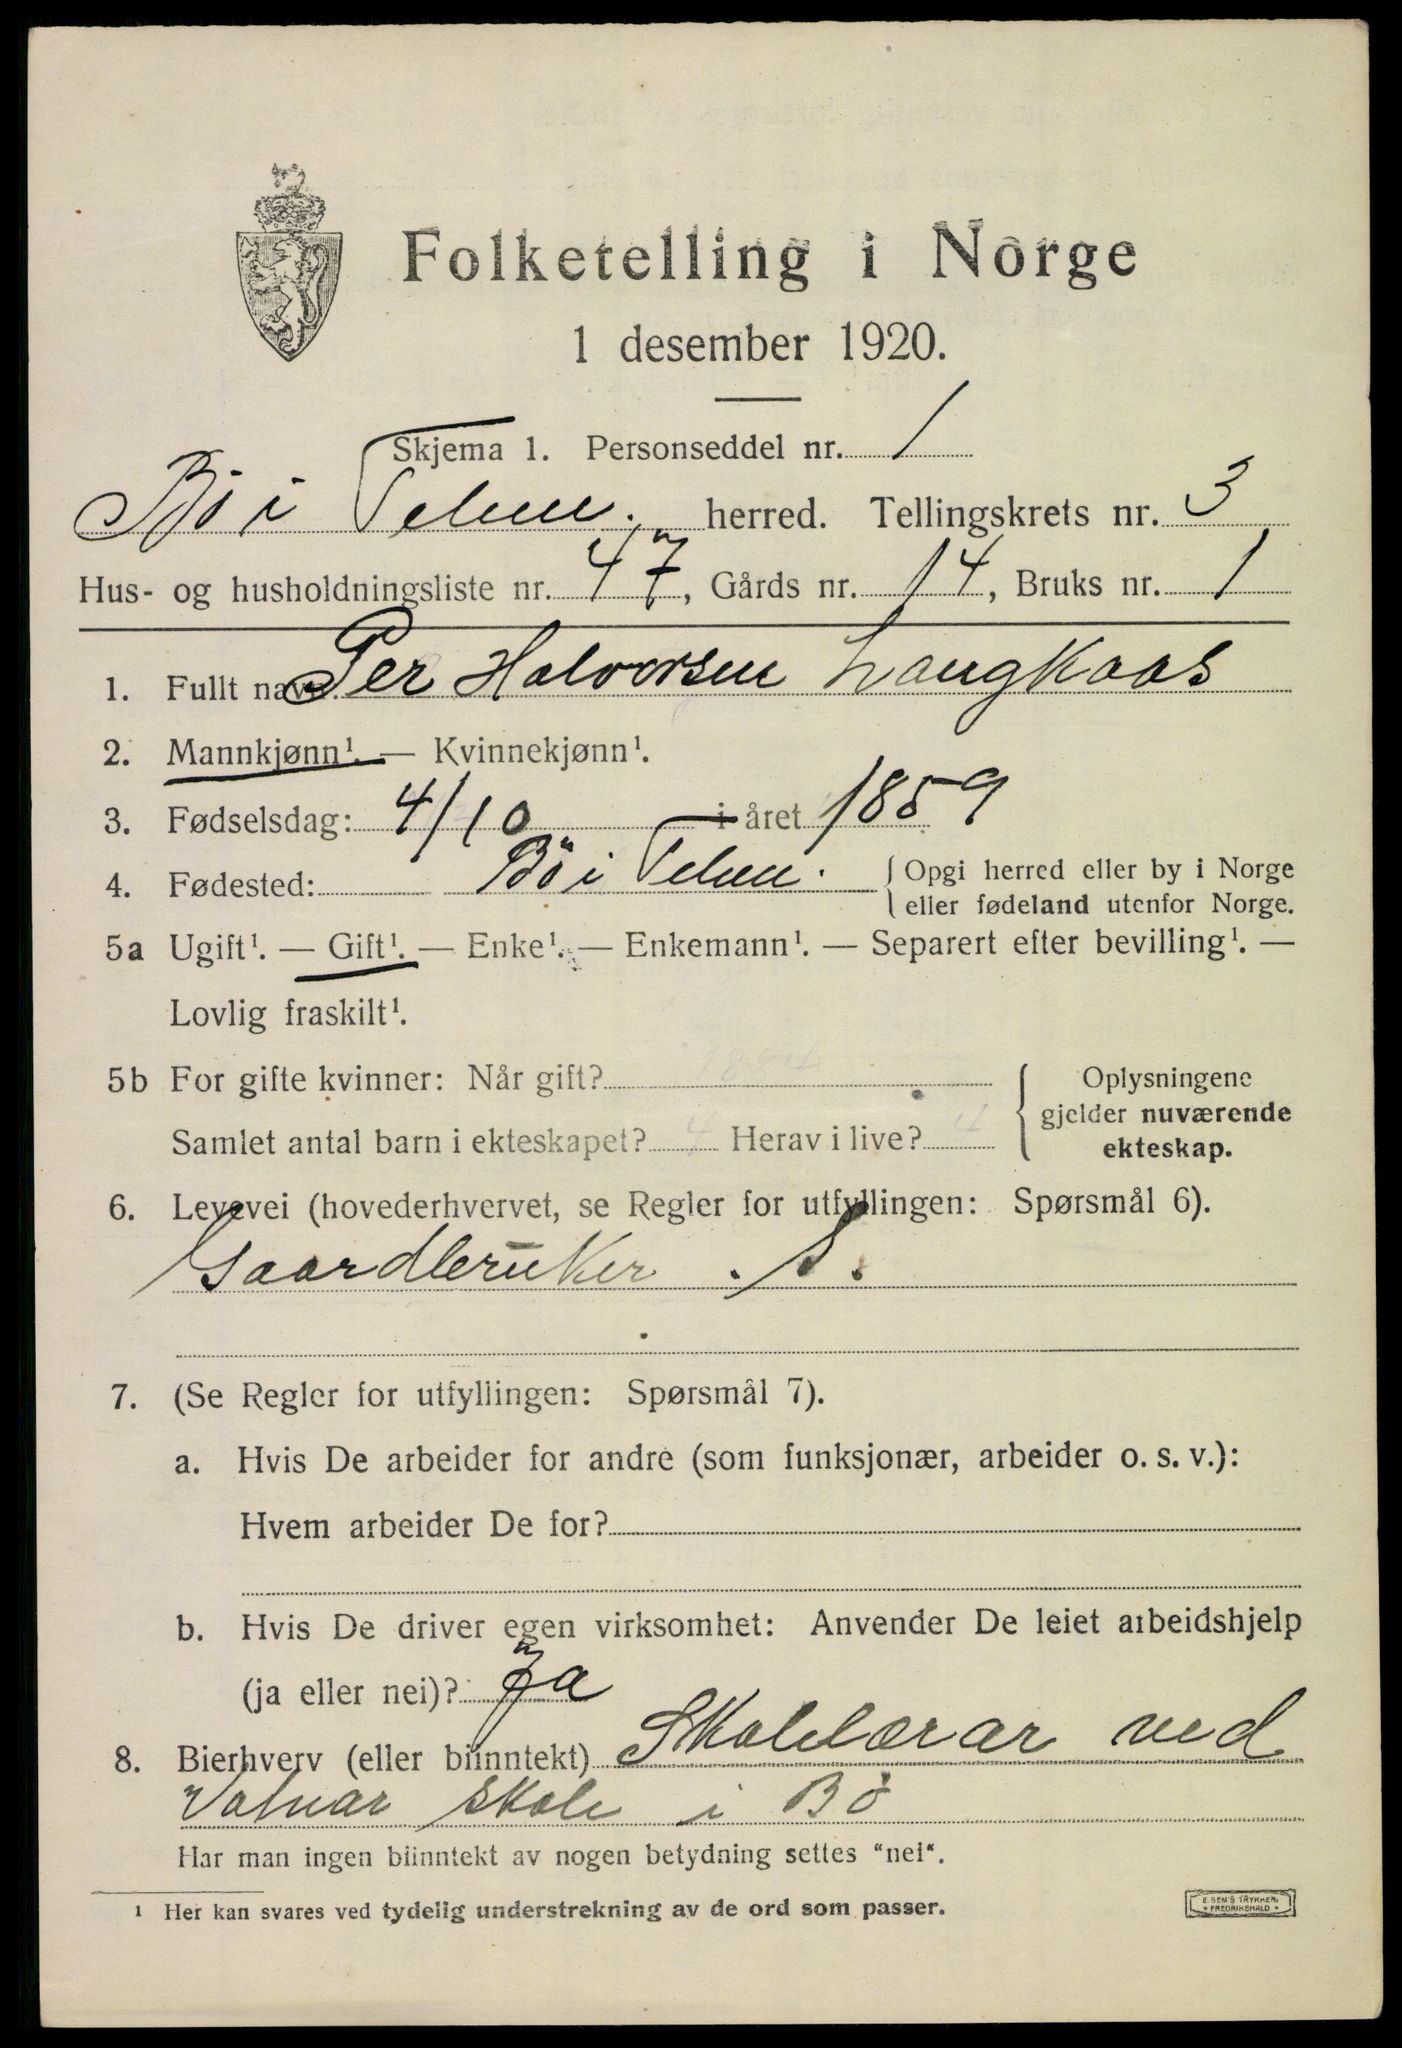 Folketelling i Norge
1 desember 1920.
Skjema 1. Personseddel nr. 1
Bö i Telem. herred. Tellingskrets nr. 3
Hus- og husholdningsliste nr. 47, Gårds nr. 14, Bruks nr. 1
1. Fullt navn Per Halvorsen Langkaas
2. Mannkjønn¹. — Kvinnekjønn¹.
3. Fødselsdag: 4/10 i året 1859
4. Fødested: Bö i Telem. { Opgi herred eller by i Norge
eller fødeland utenfor Norge.
5a Ugift¹. — Gift¹. — Enke¹. — Enkemann¹. — Separert efter bevilling¹. —
Lovlig fraskilt¹.
5b For gifte kvinner: Når gift? 1884 { Oplysningene
gjelder nuværende
Samlet antal barn i ekteskapet? 4 Herav i live? 4 ekteskap.
6. Levevei (hovederhvervet, se Regler for utfyllingen: Spørsmål 6).
Gaardbruker . S.
7. (Se Regler for utfyllingen: Spørsmål 7).
a. Hvis De arbeider for andre (som funksjonær, arbeider o. s. v.):
Hvem arbeider De for?
b. Hvis De driver egen virksomhet: Anvender De leiet arbeidshjelp
(ja eller nei)? Ja
8. Bierhverv (eller biinntekt) Skolelærar ved
skole i Bö
Har man ingen biinntekt av nogen betydning settes "nei".
¹ Her kan svares ved tydelig understrekning av de ord som passer.
E. SEM'S TRYKKERI
FREDRIKSHALD